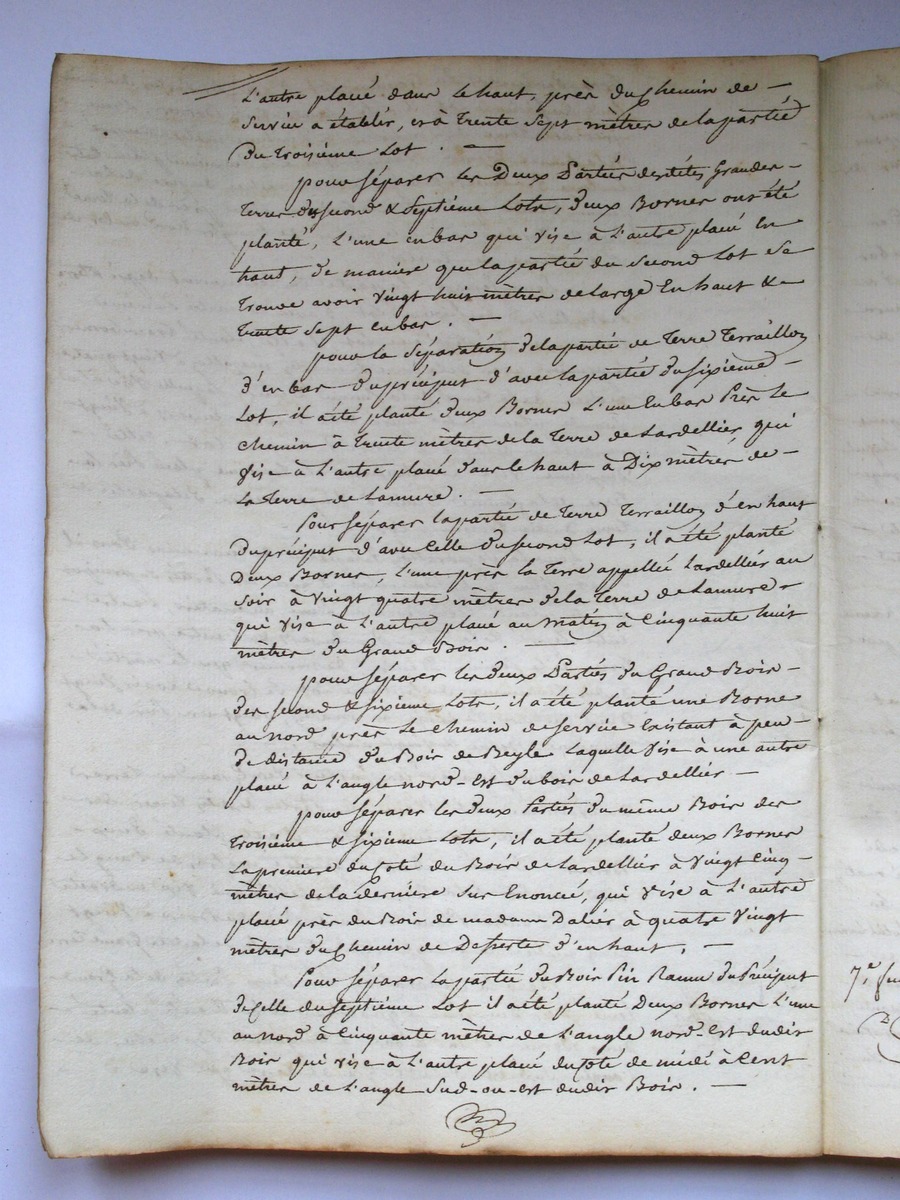 L'autre placé dans le haut, près du Chemin de —
Service a établir, et à Trente Sept mètres de la partie
Du troisième Lot. —
pour séparer les Deux Parties desdites Grandes —
Terres des second & Septième Lots, deux Bornes ont été
planté, L'une en bas qui vise à L'autre placé En
haut, de maniere que la partie du Second Lot Se
Trouve avoir Vingt huit mètres de Large En haut & —
Trente Sept en bas. —
pour la Séparation de la partie de Terre Terraillon
d'en bas du préciput d'avec la partie du Sixieme —
Lot, il a été planté deux Bornes L'une En bas Près Le
Chemin à Trente mètres de la Terre de Lardellier qui
Vise à L'autre placé dans le haut à Dix mètres de —
La Terre de Lamure. —
Pour séparer la partie de Terre Terraillon d'en haut
Du préciput d'avec Celle du second Lot, il a été planté
Deux Bornes, L'une près la Terre appellée Lardellier au
Soir à Vingt quatre mètres de la Terre de Lamure —
qui Vise à L'autre placé au matin à Cinquante huit
mètres du Grand Bois. —
pour séparer les deux Parties du Grand Bois —
des second & Sixieme Lots, il a été planté une Borne
au nord près Le Chemin de service Existant à peu —
de distance du Bois de Beyle Laquelle Vise à une autre
placé à L'angle nord-Est du bois de Lardellier —
pour séparer les deux Parties du même Bois des
Troisième & Sixieme Lots, il a été planté deux Bornes
La premiere du Coté du Bois de Lardellier à Vingt Cinq —
mètres de la derniere Sus Enoncée, qui Vise à L'autre
placé près du Bois de madame Dalier à quatre Vingt
mètres du Chemin de Deserte d'en haut, —
Pour Séparer La partie du Bois Pin Ramu du Préciput
de Celle du Septième Lot il a été planté Deux Bornes L'une
au nord à Cinquante mètres de L'angle nord-Est dudit
Bois qui vise à L'autre placé du Coté de midi à Cent
mètres de L'angle Sud-ou-est dudit Bois. —
7.e